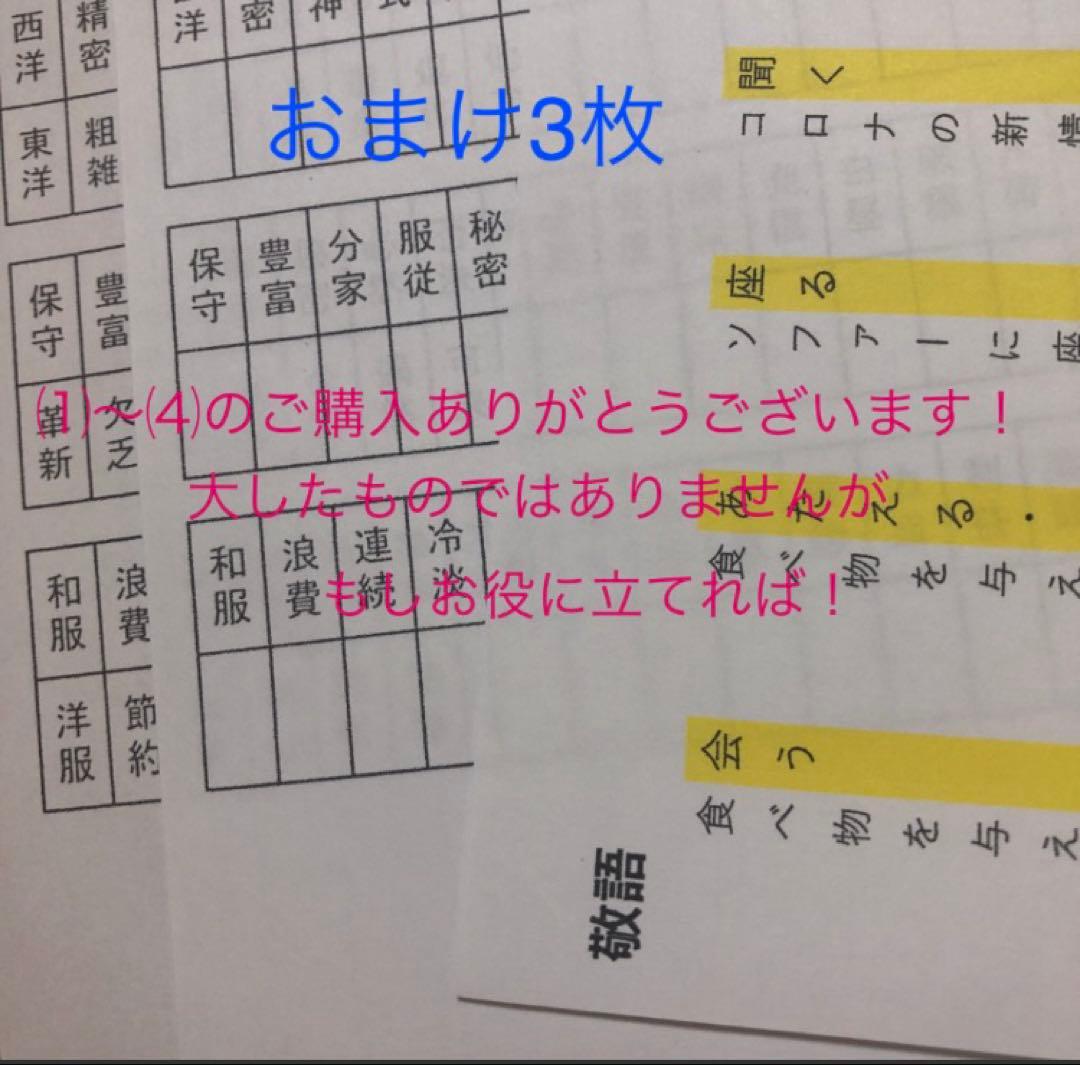 おまけ3枚
⑴〜⑷のご購入ありがとうございます！
大したものではありませんが、
もしお役に立てれば！
西洋 精密
東洋 粗雑
保守 豊富
革新 欠乏
和服 浪費
洋服 節約
洋 密 神 式
保守 豊富 分家 服従 秘密
和服 浪費 連続 冷淡
敬語
聞く
コロナの新情
座る
ソファーに座
あたえる・
食べ物を与え
会う
食べ物を与え